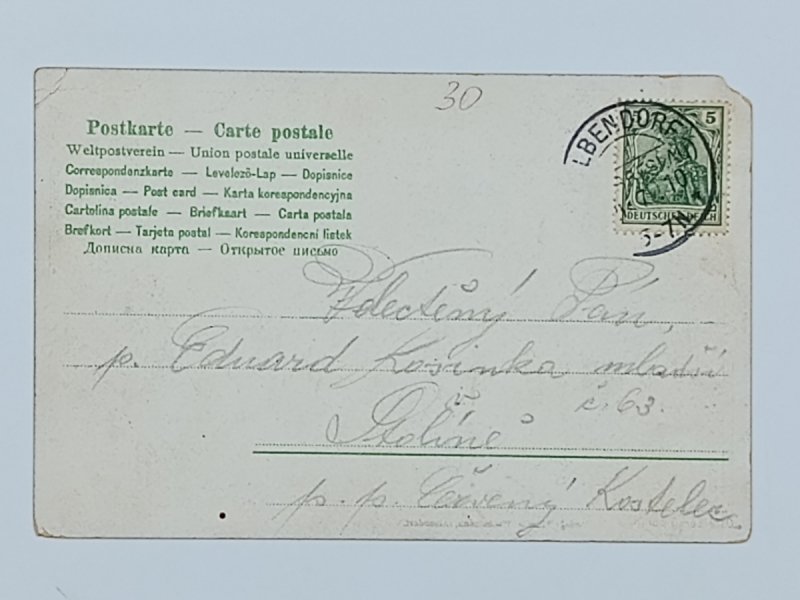 30
Postkarte — Carte postale
Weltpostverein — Union postale universelle
Correspondenzkarte — Levelező-Lap — Dopisnice
Dopisnica — Post card — Karta korespondencyjna
Cartolina postale — Briefkaart — Carta postala
Brefkort — Tarjeta postal — Korespondencni listek
Дописна карта — Открытое письмо
LBENDORF
5
DEUTSCHES REICH
5-7N
Velectěný Pán,
p. Eduard Kosinka mladší
č. 63.
v Stolíně
p. p. Červený Kostelec